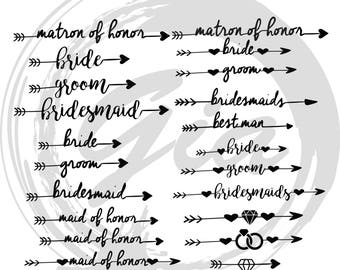 matron of honor
bride
groom
bridesmaid
bride
groom
bridesmaid
maid of honor
maid of honor
maid of honor
matron of honor
bride
groom
bridesmaids
best man
bride
groom
bridesmaids